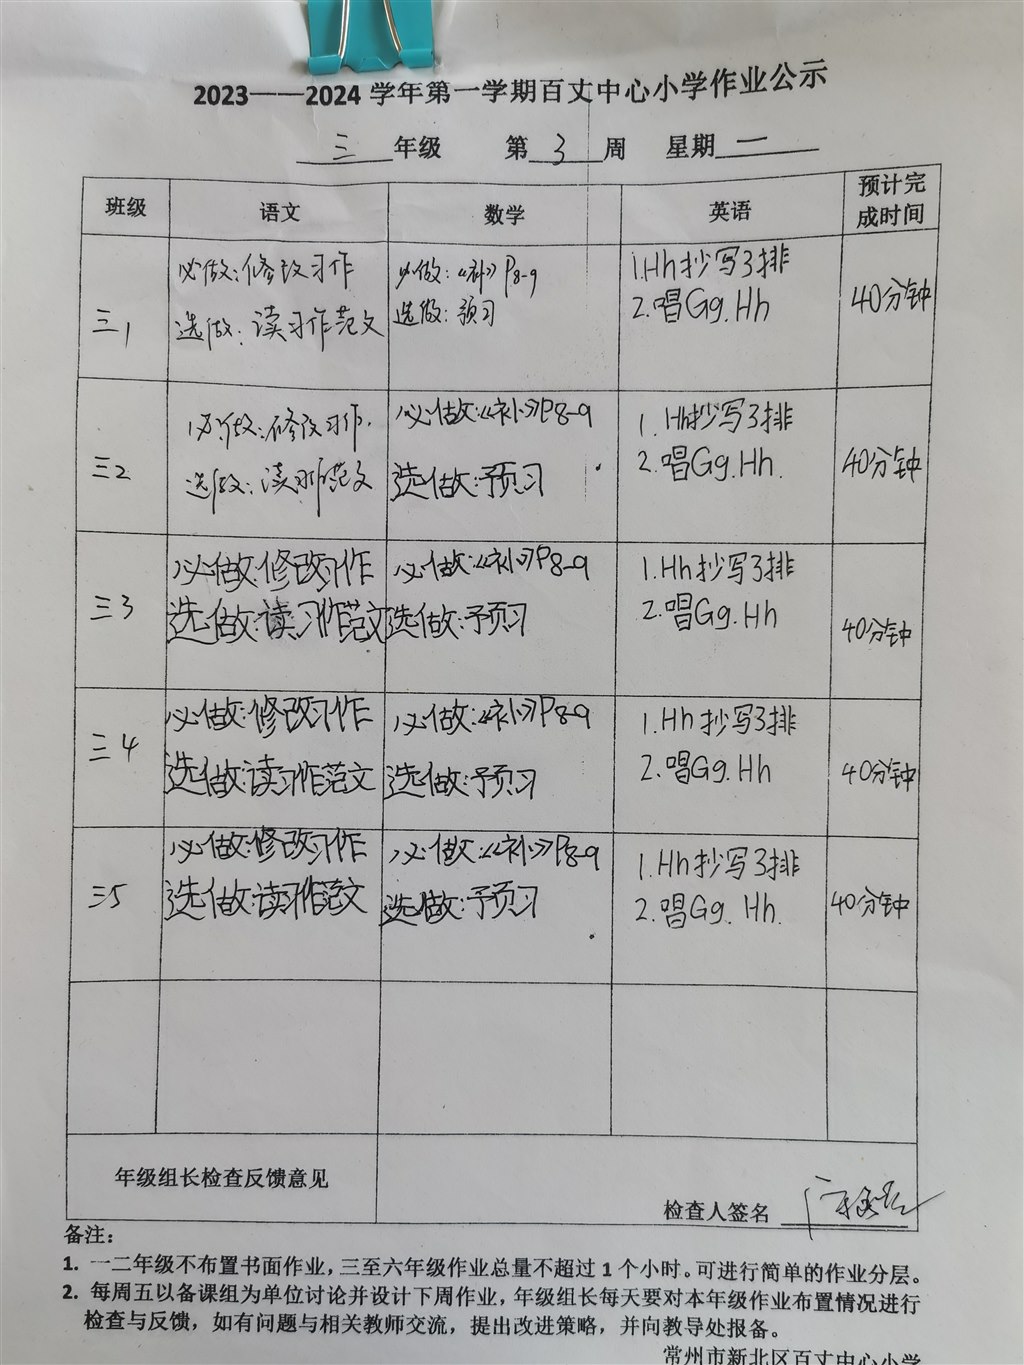 2023——2024 学年第一学期百丈中心小学作业公示
三 年级 第 3 周 星期 一
班级 语文 数学 英语 预计完成时间
三1
必做:修改习作
选做:读习作范文
必做:《补》P8-9
选做:预习
1.Hh抄写3排
2.唱Gg.Hh
40分钟
三2
必做:修改习作.
选做:读习作范文
必做:《补》P8-9
选做:予预习
1.Hh抄写3排
2.唱Gg.Hh.
40分钟
三3
必做:修改习作
选做:读习作范文
必做:《补》P8-9
选做:予预习
1.Hh抄写3排
2.唱Gg.Hh
40分钟
三4
必做:修改习作
选做:读习作范文
必做:《补》P8-9
选做:予预习
1.Hh抄写3排
2.唱Gg.Hh
40分钟
三5
必做:修改习作
选做:读习作范文
必做:《补》P8-9
选做:予预习
1.Hh抄写3排
2.唱Gg.Hh.
40分钟
年级组长检查反馈意见
检查人签名
备注:
1. 一二年级不布置书面作业，三至六年级作业总量不超过 1 个小时。可进行简单的作业分层。
2. 每周五以备课组为单位讨论并设计下周作业，年级组长每天要对本年级作业布置情况进行
检查与反馈，如有问题与相关教师交流，提出改进策略，并向教导处报备。
常州市新北区百丈中心小学